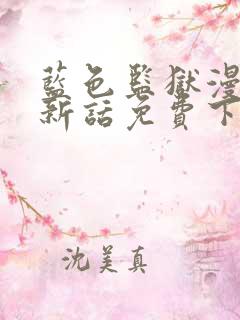 藍色監獄漫
新話免費下
沈美真